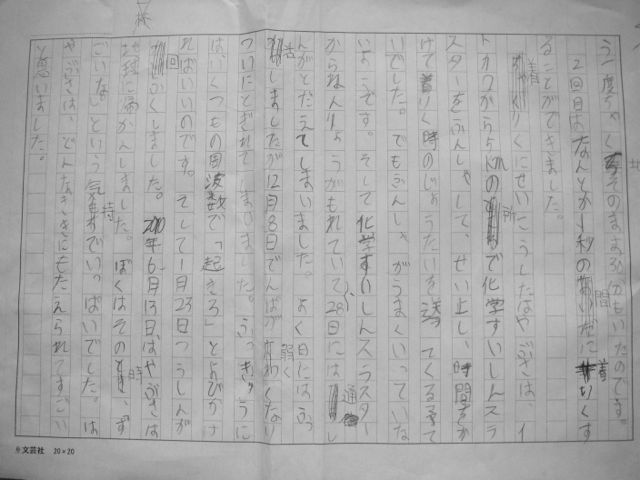 う一度ちゃくそのまま30分もいたのです。
2回目はなんとか1秒の間に着りくす
ることができました。
着りくにせいこうしたはやぶさは、イ
トカワから5kmの所で化学すいしんスラ
スターをふんしゃして、せい止し、時間をか
けて着りく時のじょうたいを送ってくる予て
いでした。でもふんしゃがうまくいっていな
いようです。そして化学すいしんスラスター
からねんりょうがもれていて、28日には通し
んがとだえてしまいました。よく日にはふっ
活しましたが12月8日でんぱが弱くなり
ついにとぎれてしまいました。ふっきゅうに
は、いくつもの周波数で「起きろ」とよびかけ
ればいいのです。そして1月23日つうしんが
回ふくしました。2010年6月13日はやぶさは
地球に帰かんしました。ぼくはその時、す
ごいなという気持でいっぱいでした。は
やぶさは、どんなききにもたえられてすごい
と思いました。
文芸社 20×20